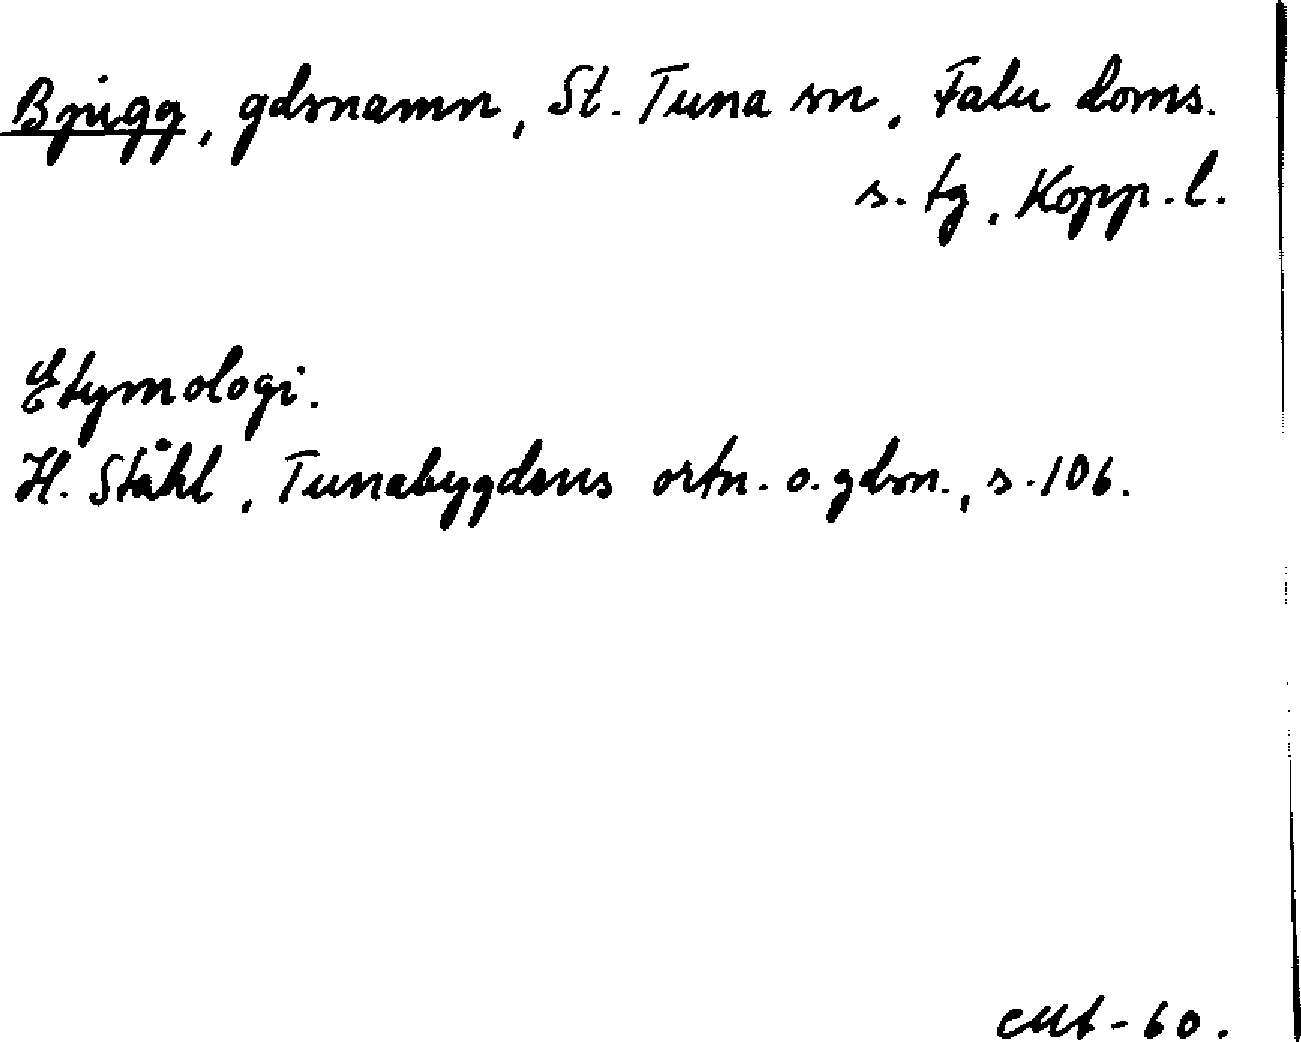 Bjugg, gdsnamn, St. Tuna sn, Falu doms.
s. tg, Kopp. l.
Etymologi.
H. Ståhl, Tunabygdens ortn. o. gdsn., s. 106.
-60.